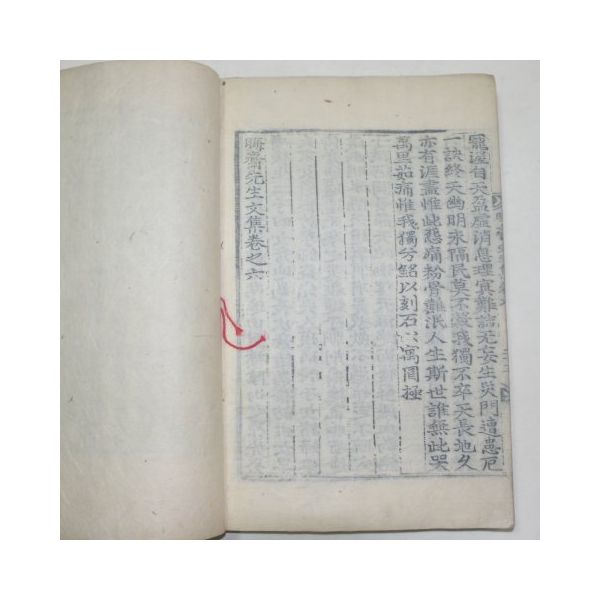 寵渥自天盈虛消息理實難諶无妄生災門遭愚厄
一訣終天幽明永隔民莫不穀我獨不卒天長地久
亦有涯盡惟此慈痛粉骨難泯人生斯世誰無此哭
萬里茹痛惟我獨兮銘以刻石以寓罔極
晦齋先生文集卷之六